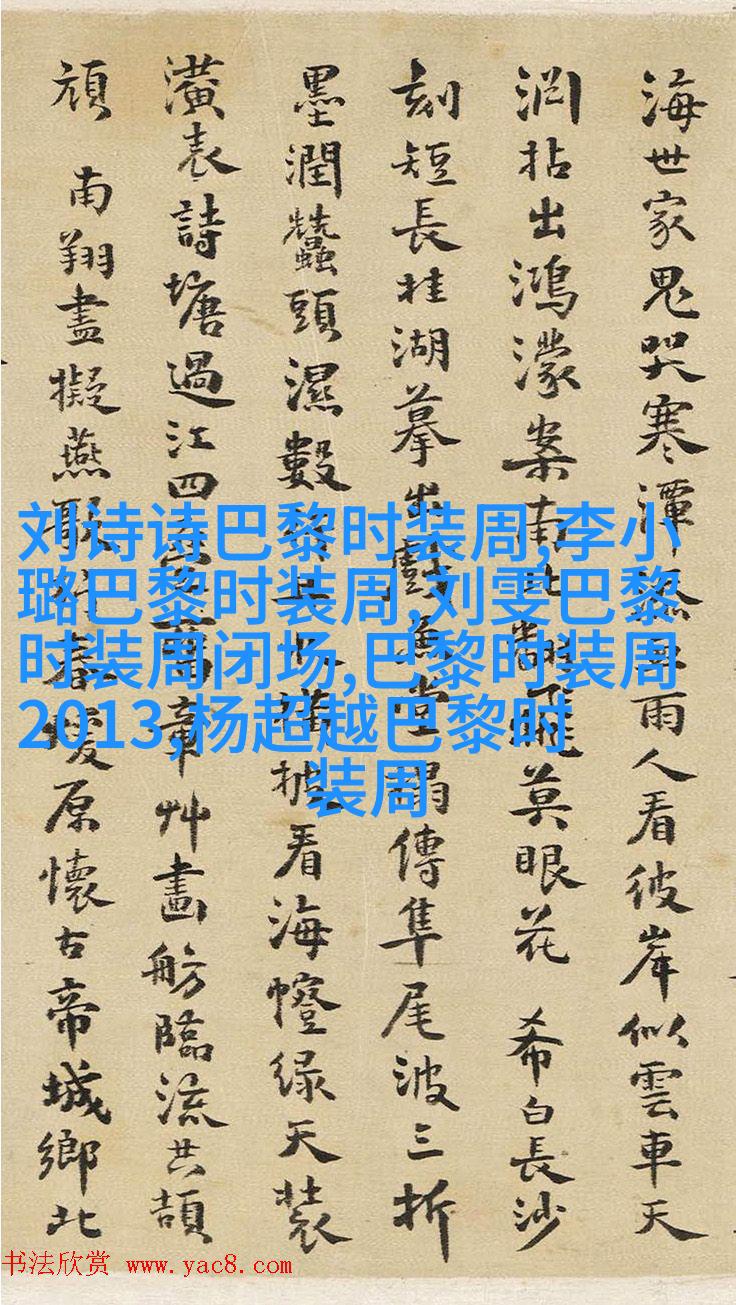 海世家鬼哭寒潭雨人看彼岸似雲車天
洞拈出鴻濛案南北飛莫眼花 希白長沙
刻短長桂湖摹出戲魚堂搨傳隼尾波三折
墨潤蠶頭濕數橫披看海幢綠天裝
潢表詩塘過江四章艸畫舫臨流共頡
頏 南翔盡擬燕春暖原懷古帝城鄉北
刘诗诗巴黎时装周,李小
璐巴黎时装周,刘雯巴黎
时装周闭场,巴黎时装周
2013,杨超越巴黎时
装周
书法欣赏 www.yac8.com